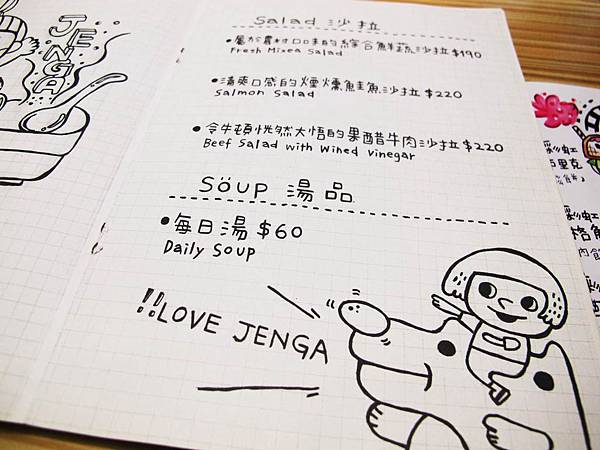 JENGA
Salad 沙拉
•屬於農村口味的綜合鮮蔬沙拉$190
Fresh Mixea Salad
•清爽口感的煙燻鮭魚沙拉$220
Salmon Salad
•令牛頓恍然大悟的果醋牛肉沙拉$220
Beef Salad with Wined Vinegar
SOUP 湯品
•每日湯$60
Daily Soup
!!LOVE JENGA
彩虹
彩虹